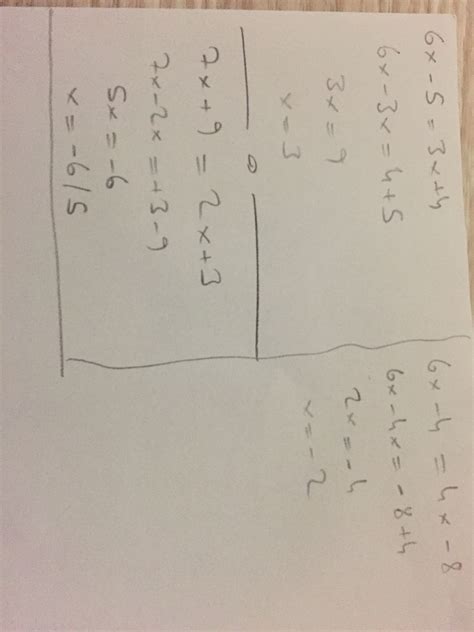 6x - 5 = 3x + 4
6x - 3x = 4 + 5
3x = 9
x = 3
7x + 9 = 2x + 3
7x - 2x = +3 - 9
5x = -6
x = -6/5
6x - 4 = 4x - 8
6x - 4x = -8 + 4
2x = -4
x = -2